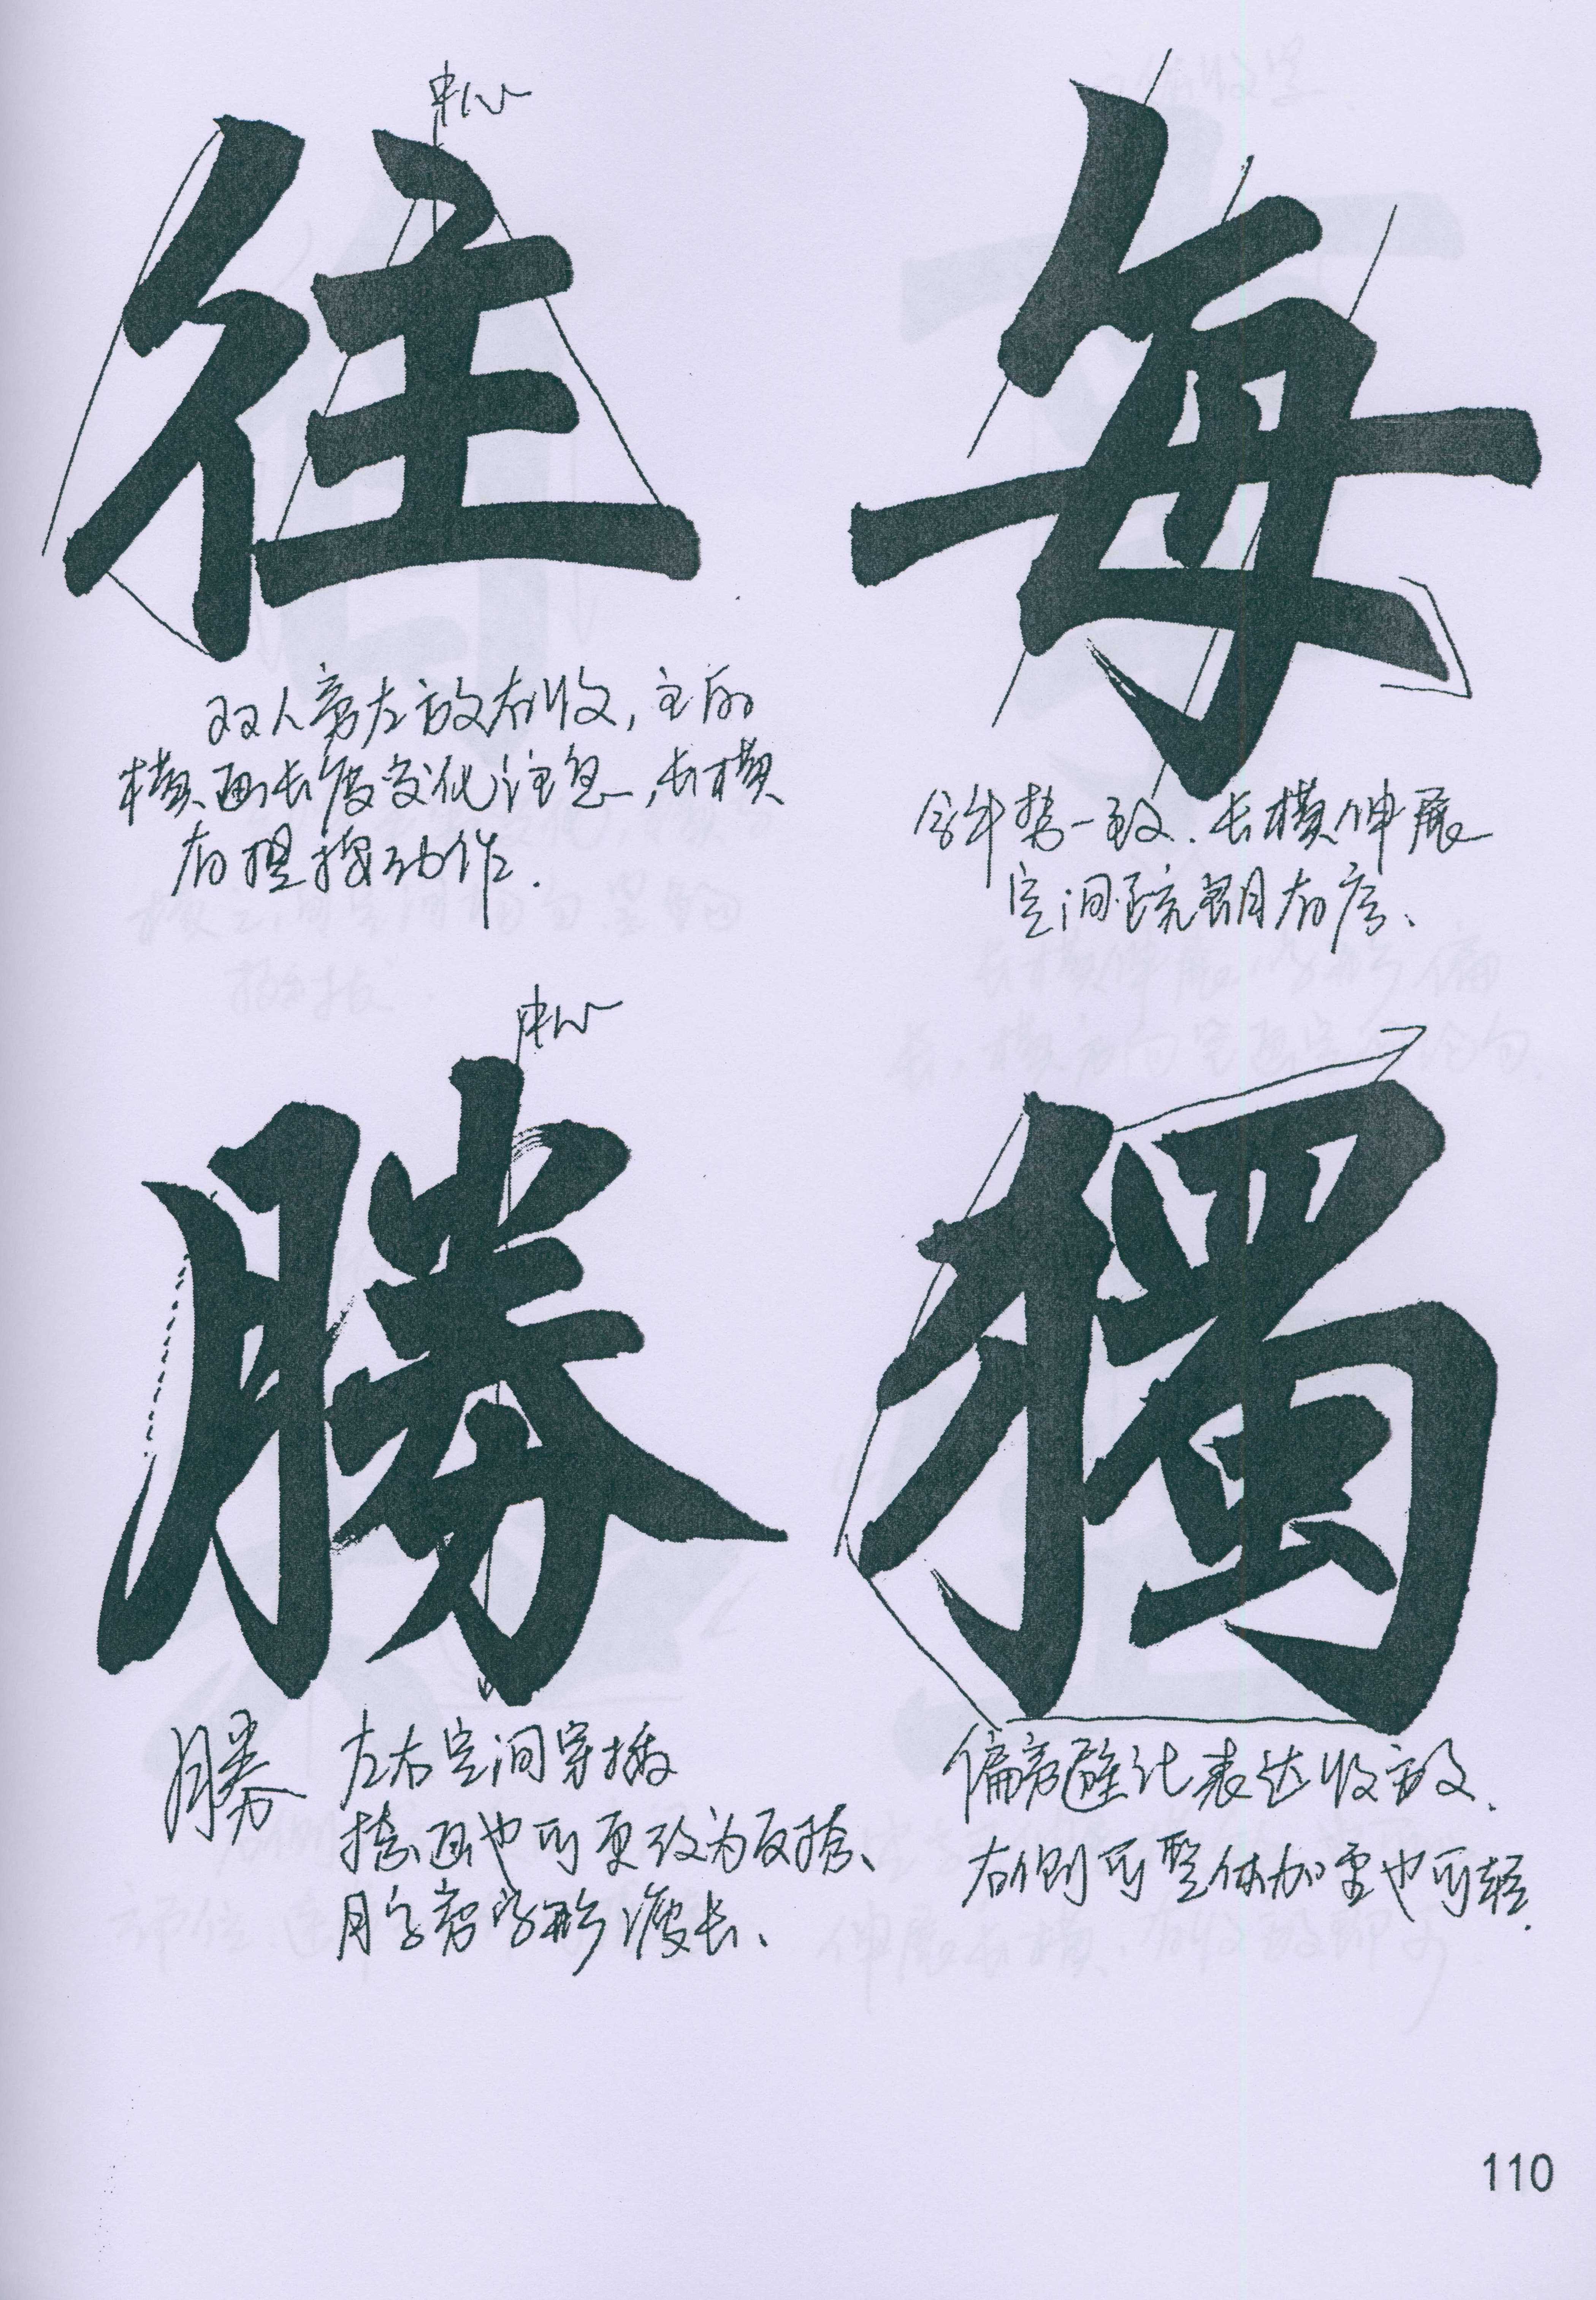 中心
往
双人旁左放右收，主的
横画长度变化注意，长横
有提按动作.
每
斜势一致.长横伸展
空间疏朗有序、
中心
勝
勝
左右空间穿插
捺画也可更改为反捺、
月字旁字形瘦长、
獨
偏旁避让表达收放、
右侧可整体加重也可轻.
110